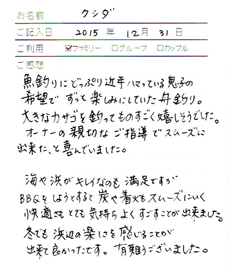 お名前 クシダ
ご記入日 2015 年 12 月 31 日
ご利用 ☑ファミリー □グループ □カップル
ご感想
魚釣りにどっぷり近年ハマっている息子の
希望で ずっと楽しみにしていた舟釣り。
大きなカサゴを釣ってものすごく嬉しそうでした。
オーナーの親切なご指導でスムーズに
出来た、と喜んでいました。
海や浜がキレイなのも満足ですが
BBQもしようとすると炭や着火もスムーズにいく
快適さもとても気持ちよくすごすことが出来ました。
冬でも浜辺の楽しさを感じることが
出来て良かったです。有難うございました。